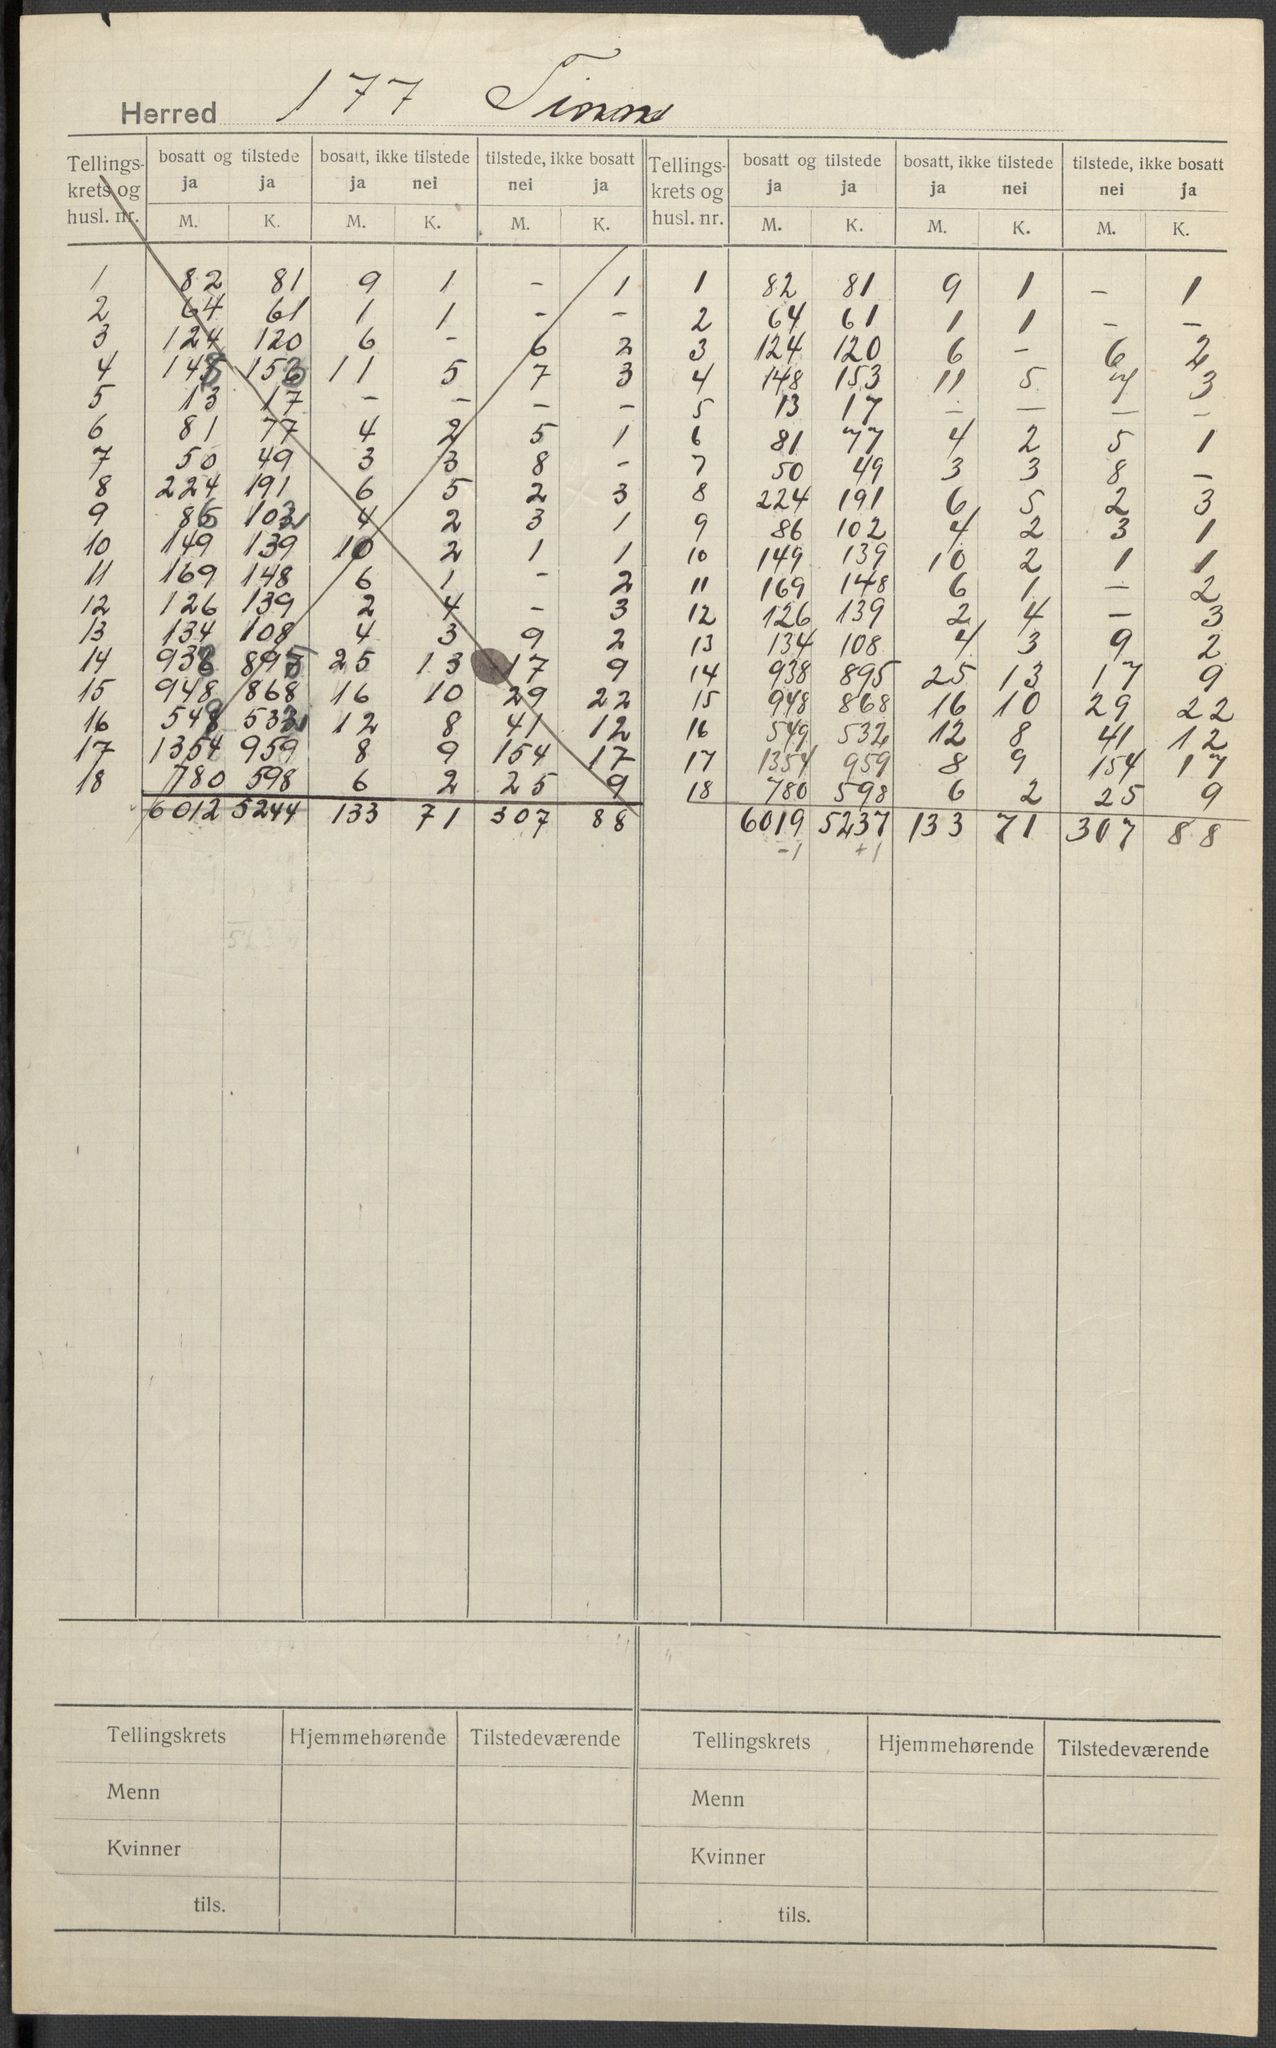 Herred 177 Tinn
Tellings-krets og husl. nr. | bosatt og tilstede | bosatt, ikke tilstede | tilstede, ikke bosatt | Tellings-krets og husl. nr. | bosatt og tilstede | bosatt, ikke tilstede | tilstede, ikke bosatt
ja ja ja nei nei ja ja ja ja nei nei ja
M. K. M. K. M. K. M. K. M. K. M. K.
1 82 81 9 1 - 1 1 82 81 9 1 - 1
2 64 61 1 1 - - 2 64 61 1 1 - -
3 124 120 6 - 6 2 3 124 120 6 - 6 2
4 148 153 11 5 7 3 4 148 153 11 5 7 3
5 13 17 - - - - 5 13 17 - - - -
6 81 77 4 2 5 1 6 81 77 4 2 5 1
7 50 49 3 3 8 - 7 50 49 3 3 8 -
8 224 191 6 5 2 3 8 224 191 6 5 2 3
9 86 102 4 2 3 1 9 86 102 4 2 3 1
10 149 139 10 2 1 1 10 149 139 10 2 1 1
11 169 148 6 1 - 2 11 169 148 6 1 - 2
12 126 139 2 4 - 3 12 126 139 2 4 - 3
13 134 108 4 3 9 2 13 134 108 4 3 9 2
14 938 895 25 13 17 9 14 938 895 25 13 17 9
15 948 868 16 10 29 22 15 948 868 16 10 29 22
16 549 532 12 8 41 12 16 549 532 12 8 41 12
17 1354 959 8 9 154 17 17 1354 959 8 9 154 17
18 780 598 6 2 25 9 18 780 598 6 2 25 9
6012 5244 133 71 307 88 6019 5237 133 71 307 88
-1 +1
Tellingskrets Hjemmehørende Tilstedeværende Tellingskrets Hjemmehørende Tilstedeværende
Menn Menn
Kvinner Kvinner
tils. tils.